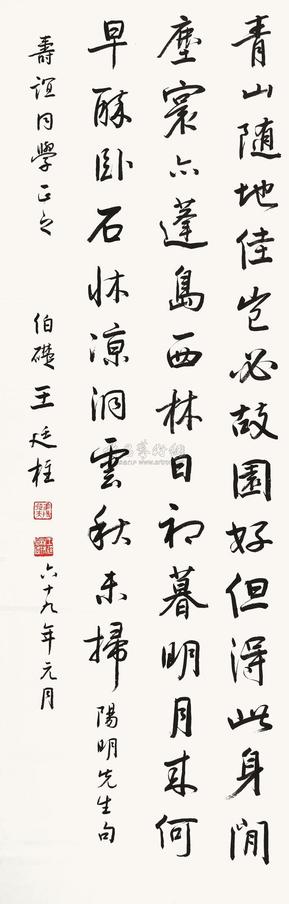 青山随地佳豈必故園好但得此身閒
塵寰亦蓬島西林日初暮明月来何
早酥卧石牀凉洞雲秋未掃
陽明先生句
壽誼同學正之
伯礎王廷柱
六十九年元月